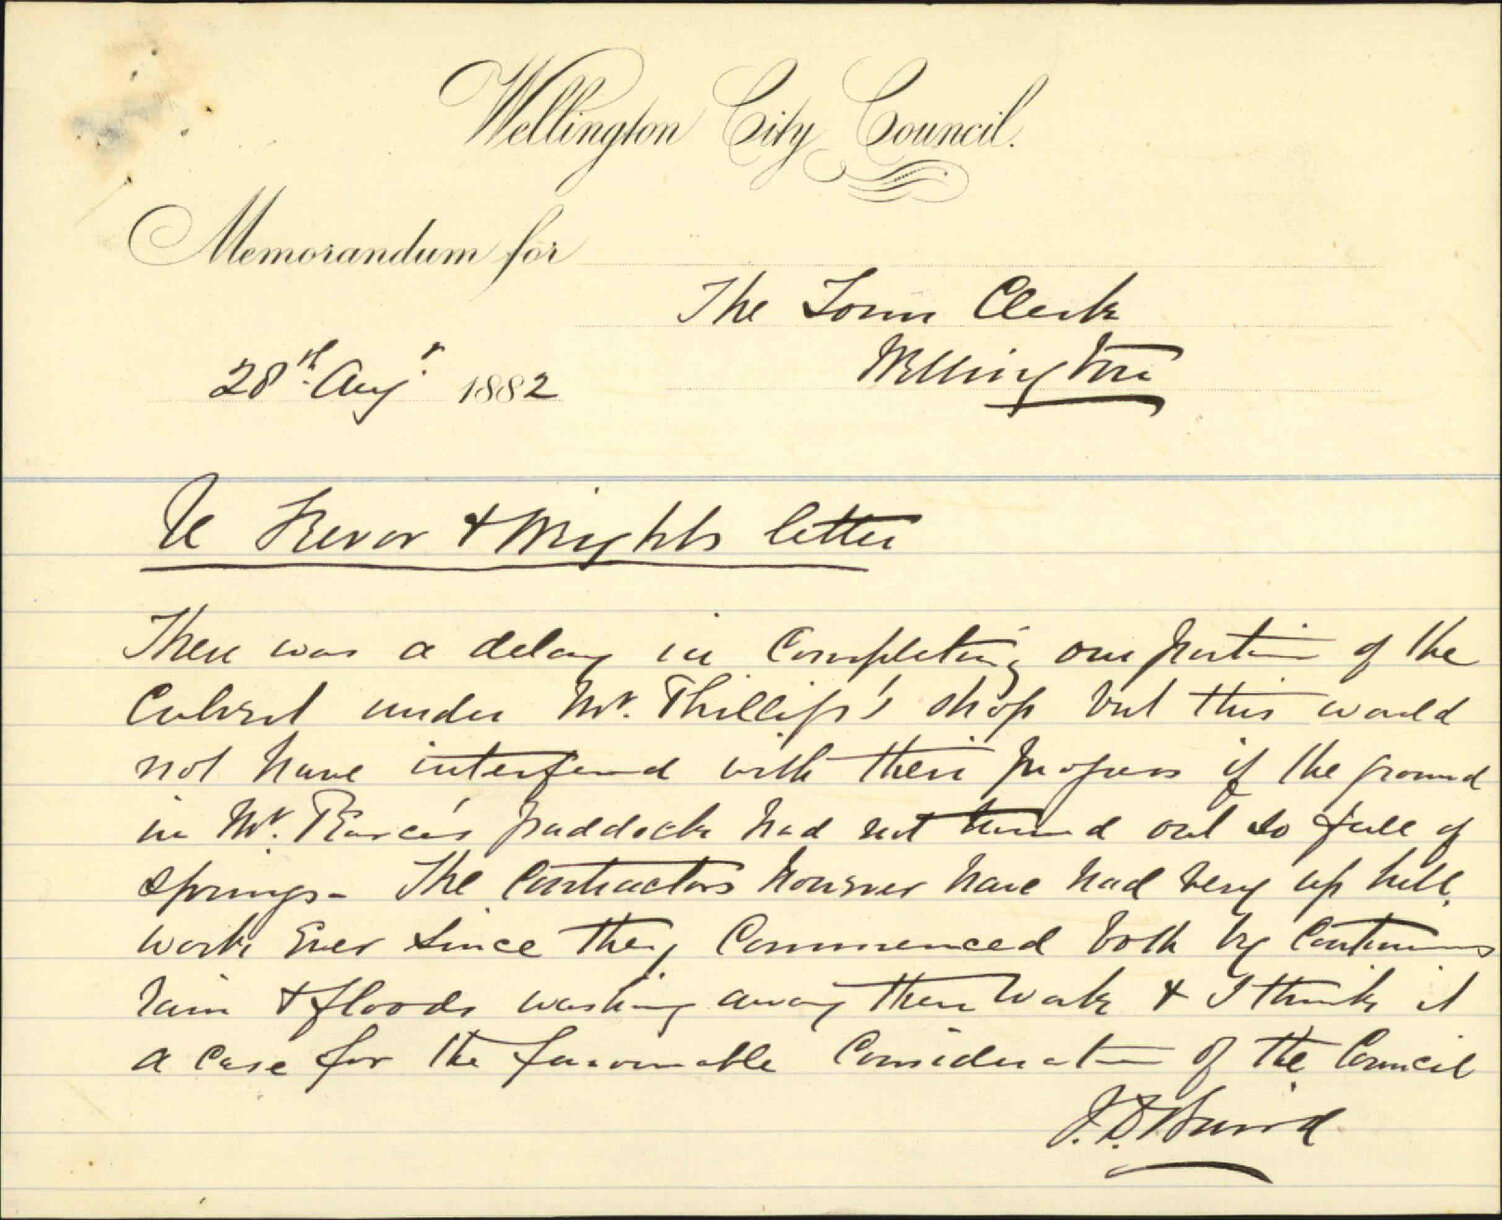 Wellington City Council.
Memorandum for
The Town Clerk
Wellington
28th. Augt. 1882
Re Trevor & Wrights letter
There was a delay in Completing our portion of the
Culvert under Mr. Phillips's shop but this would
not have interfered with their progress if the ground
in Mr. Pearce's paddock had not turned out so full of
springs - The Contractors however have had very up hill
work Ever since they Commenced both by Continuous
rain & floods washing away their work & I think it
a case for the favourable Consideration of the Council
J. D. Baird